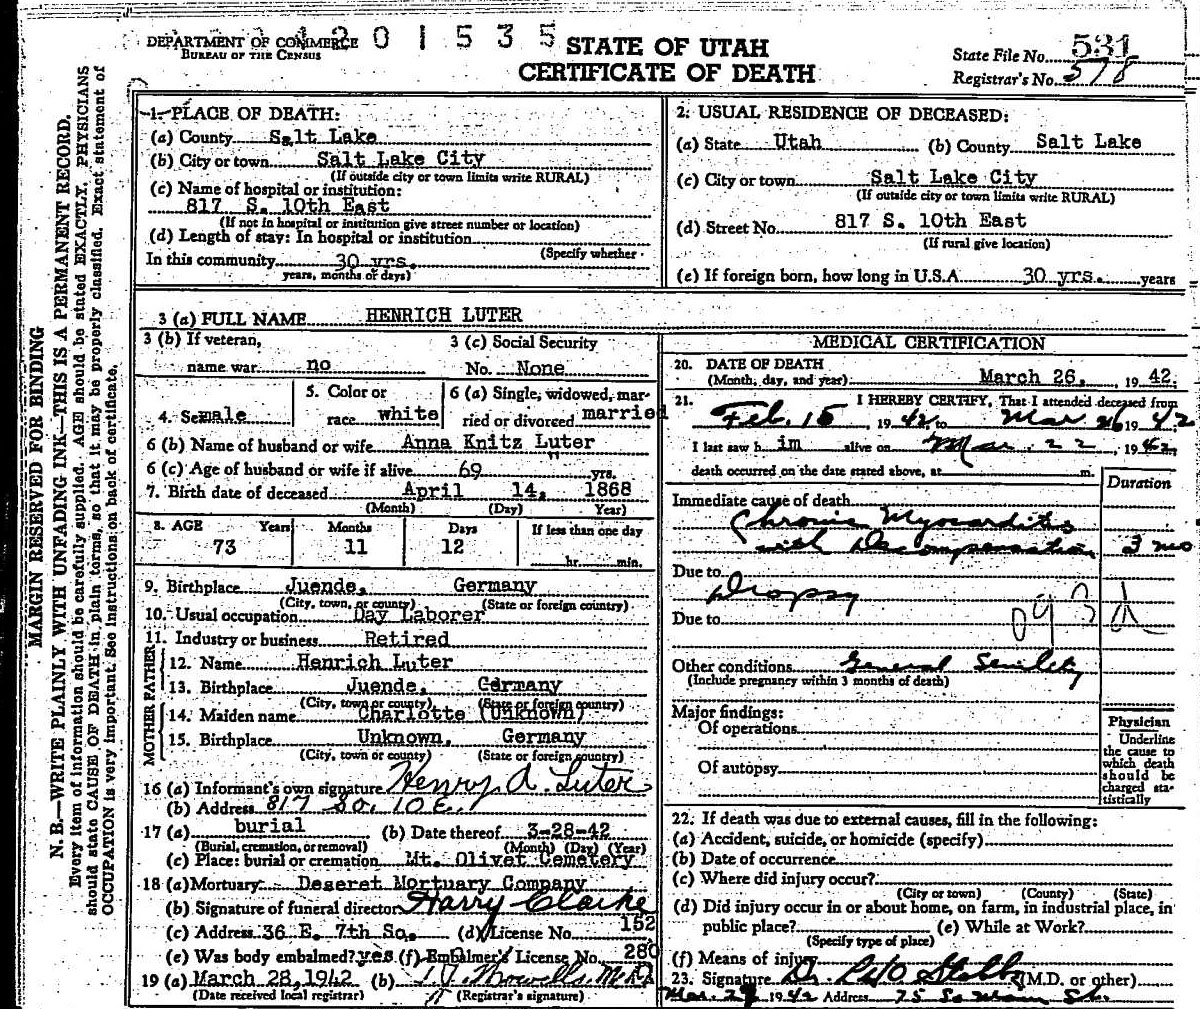 DEPARTMENT OF COMMERCE
BUREAU OF THE CENSUS
0 1 5 3 5
STATE OF UTAH
CERTIFICATE OF DEATH
State File No. 531
Registrar's No. 578
MARGIN RESERVED FOR BINDING
N. B.—WRITE PLAINLY WITH UNFADING INK—THIS IS A PERMANENT RECORD.
Every item of information should be carefully supplied. AGE should be stated EXACTLY. PHYSICIANS
should state CAUSE OF DEATH in plain terms, so that it may be properly classified. Exact statement of
OCCUPATION is very important. See instructions on back of certificate.
1. PLACE OF DEATH:
(a) County Salt Lake
(b) City or town Salt Lake City
(If outside city or town limits write RURAL)
(c) Name of hospital or institution:
817 S. 10th East
(If not in hospital or institution give street number or location)
(d) Length of stay: In hospital or institution
(Specify whether
In this community 30 yrs.
years, months or days)
2. USUAL RESIDENCE OF DECEASED:
(a) State Utah (b) County Salt Lake
(c) City or town Salt Lake City
(If outside city or town limits write RURAL)
(d) Street No. 817 S. 10th East
(If rural give location)
(e) If foreign born, how long in U.S.A. 30 yrs. years
3 (a) FULL NAME HENRICH LUTER
3 (b) If veteran, 3 (c) Social Security
name war no No. None
4. Sex male 5. Color or race white 6 (a) Single, widowed, married or divorced married
6 (b) Name of husband or wife Anna Knitz Luter
6 (c) Age of husband or wife if alive 69 yrs.
7. Birth date of deceased April 14, 1868
(Month) (Day) Year)
8. AGE Years Months Days If less than one day
73 11 12 hr. min.
9. Birthplace Juende, Germany
(City, town, or county) (State or foreign country)
10. Usual occupation Day Laborer
11. Industry or business Retired
FATHER
12. Name Henrich Luter
13. Birthplace Juende, Germany
(City, town or county) (State or foreign country)
MOTHER
14. Maiden name Charlotte (Unknown)
15. Birthplace Unknown, Germany
(City, town or county) (State or foreign country)
16 (a) Informant's own signature Henry A. Luter
(b) Address 817 So. 10 E.
17 (a) burial (b) Date thereof 3-28-42
(Burial, cremation, or removal) (Month) (Day) (Year)
(c) Place: burial or cremation Mt. Olivet Cemetery
18 (a) Mortuary: Deseret Mortuary Company
(b) Signature of funeral director Harry Clarke
(c) Address 36 E. 7th So. (d) License No. 152
(e) Was body embalmed? yes (f) Embalmer's License No. 280
19 (a) March 28, 1942 (b) M.D.
(Date received local registrar) (Registrar's signature)
MEDICAL CERTIFICATION
20. DATE OF DEATH
(Month, day, and year): March 26, 1942.
21. I HEREBY CERTIFY, That I attended deceased from
Feb. 15 1942, to Mar 26 1942
I last saw h im alive on Mar. 22, 1942,
death occurred on the date stated above, at m.
Duration
Immediate cause of death
Chronic Myocarditis
with Decompensation 3 mo
Due to
Dropsy
Due to
Other conditions General Senility
(Include pregnancy within 3 months of death)
Major findings:
Of operations
Of autopsy
Physician
Underline
the cause to
which death
should be
charged sta-
tistically
22. If death was due to external causes, fill in the following:
(a) Accident, suicide, or homicide (specify)
(b) Date of occurrence
(c) Where did injury occur?
(City or town) (County) (State)
(d) Did injury occur in or about home, on farm, in industrial place, in
public place? (e) While at Work?
(Specify type of place)
(f) Means of injury
23. Signature Dr. (M.D. or other)
Mar. 27 1942 Address 75 So Main St.